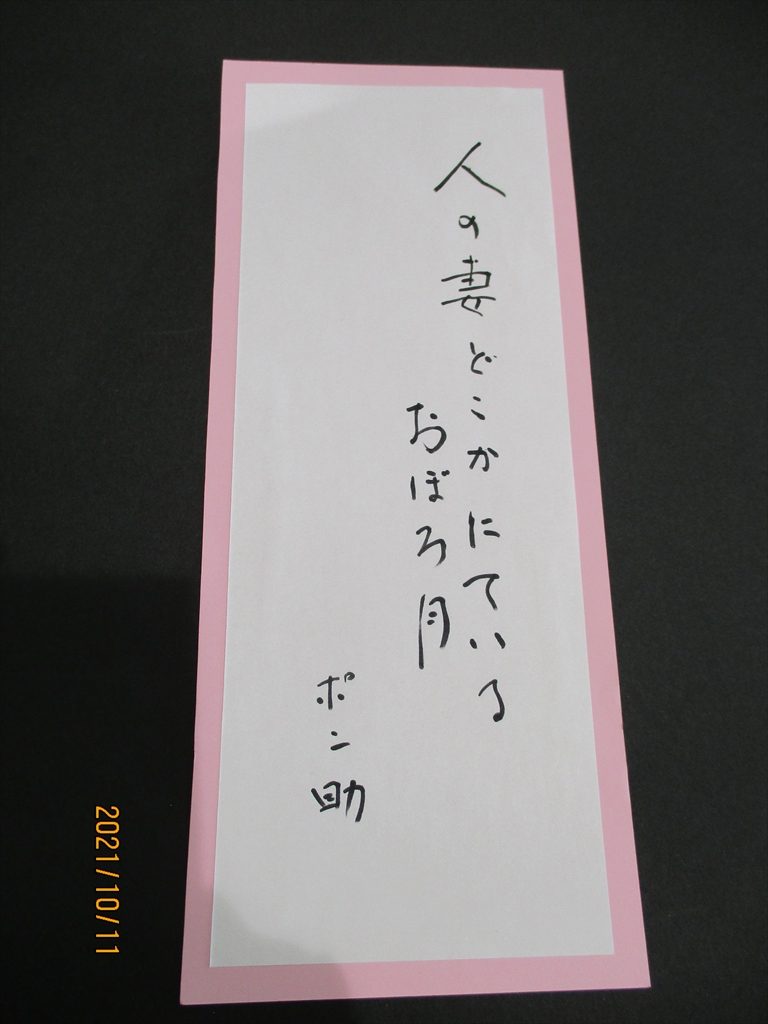 人の妻どこかにている
おぼろ月
ポン助
2021/10/11